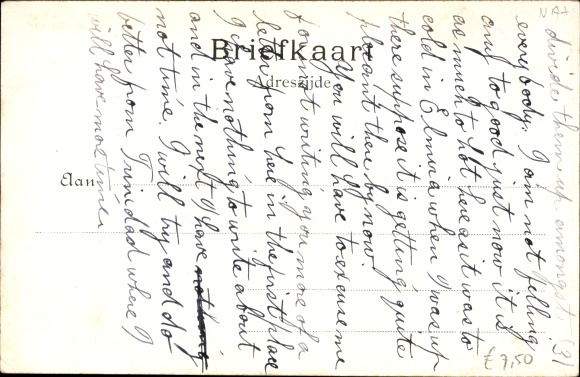 Briefkaart
Adreszijde
Aan
N A 7
(3)
divide them up amongst
everybody. I am not felling
any to good just now it is
as much to hot here as it was to
cold in Elmira when I was up
there suppose it is getting quite
plesant there by now.
You will have to excuse me
for not writing you more of a
letter from here in the first place
I have nothing to write about
and in the next I have nothing
not time. I will try and do
better from Trinidad where I
will have more time.
£ 7,50